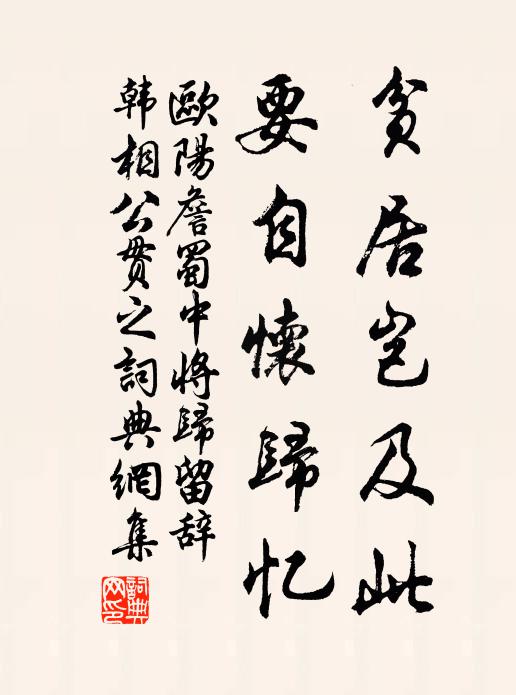 貧居豈及此
要自懷歸忆
歐陽詹蜀中將歸留辞
韩相公贯之詞典網集
詞典網印